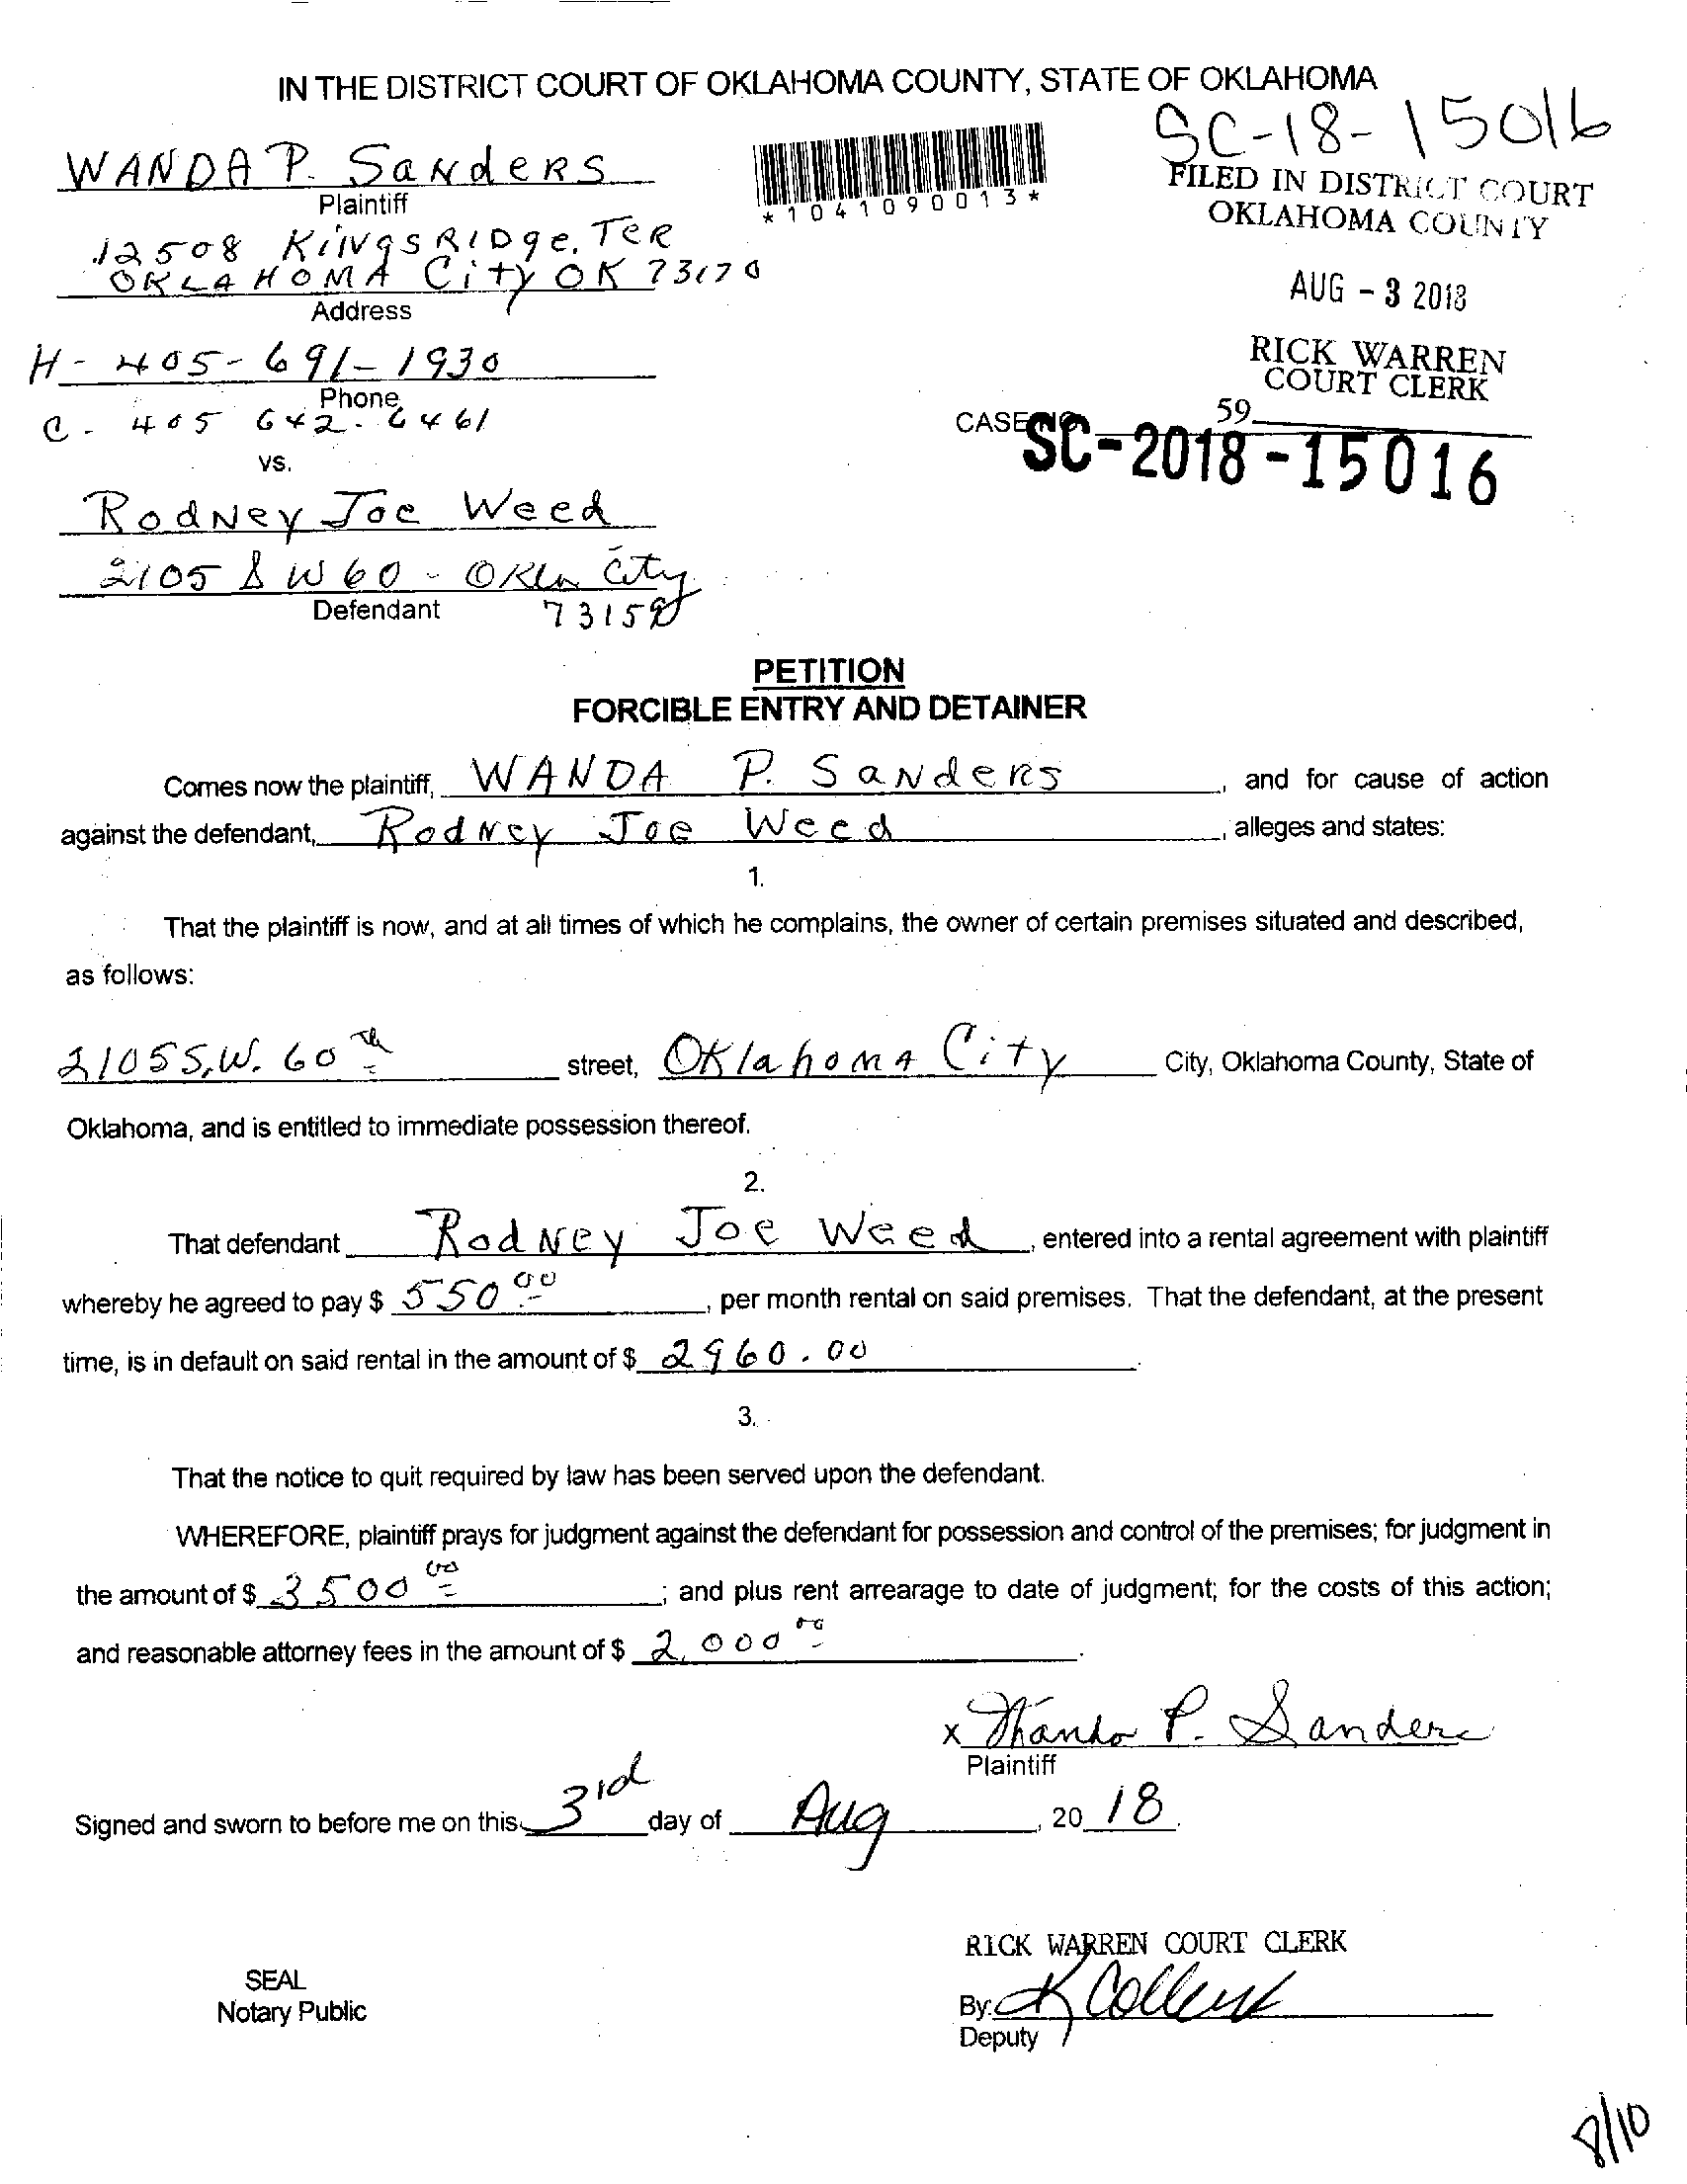 IN THE DISTRICT COURT OF OKLAHOMA COUNTY, STATE OF OKLAHOMA
SC-18-15016
WANDA P. SaNdeRS
Plaintiff
*1041090013*
FILED IN DISTRICT COURT
OKLAHOMA COUNTY
12508 KiNgsRIDge. TeR
OKLAHOMA CiTy OK 73170
Address
AUG - 3 2018
H- 405-691-1930
Phone
RICK WARREN
COURT CLERK
C - 405 642-6461
CASE NO.
59
SC-2018-15016
vs.
RodNey Joe Weed
2105 S W 60 - Okla City
Defendant
73159
PETITION
FORCIBLE ENTRY AND DETAINER
Comes now the plaintiff, WANDA P. SaNdeRS, and for cause of action
against the defendant, RodNey Joe Weed, alleges and states:
1.
That the plaintiff is now, and at all times of which he complains, the owner of certain premises situated and described,
as follows:
2105 S.W. 60th street, OKlahoma City City, Oklahoma County, State of
Oklahoma, and is entitled to immediate possession thereof.
2.
That defendant RodNey Joe Weed, entered into a rental agreement with plaintiff
whereby he agreed to pay $ 550 00, per month rental on said premises. That the defendant, at the present
time, is in default on said rental in the amount of $ 2960.00.
3.
That the notice to quit required by law has been served upon the defendant.
WHEREFORE, plaintiff prays for judgment against the defendant for possession and control of the premises; for judgment in
the amount of $ 3500 00; and plus rent arrearage to date of judgment; for the costs of this action;
and reasonable attorney fees in the amount of $ 2,000 00.
x Wanda P. Sanders
Plaintiff
Signed and sworn to before me on this 3rd day of Aug, 20 18.
RICK WARREN COURT CLERK
SEAL
Notary Public
By: K
Deputy
8/10